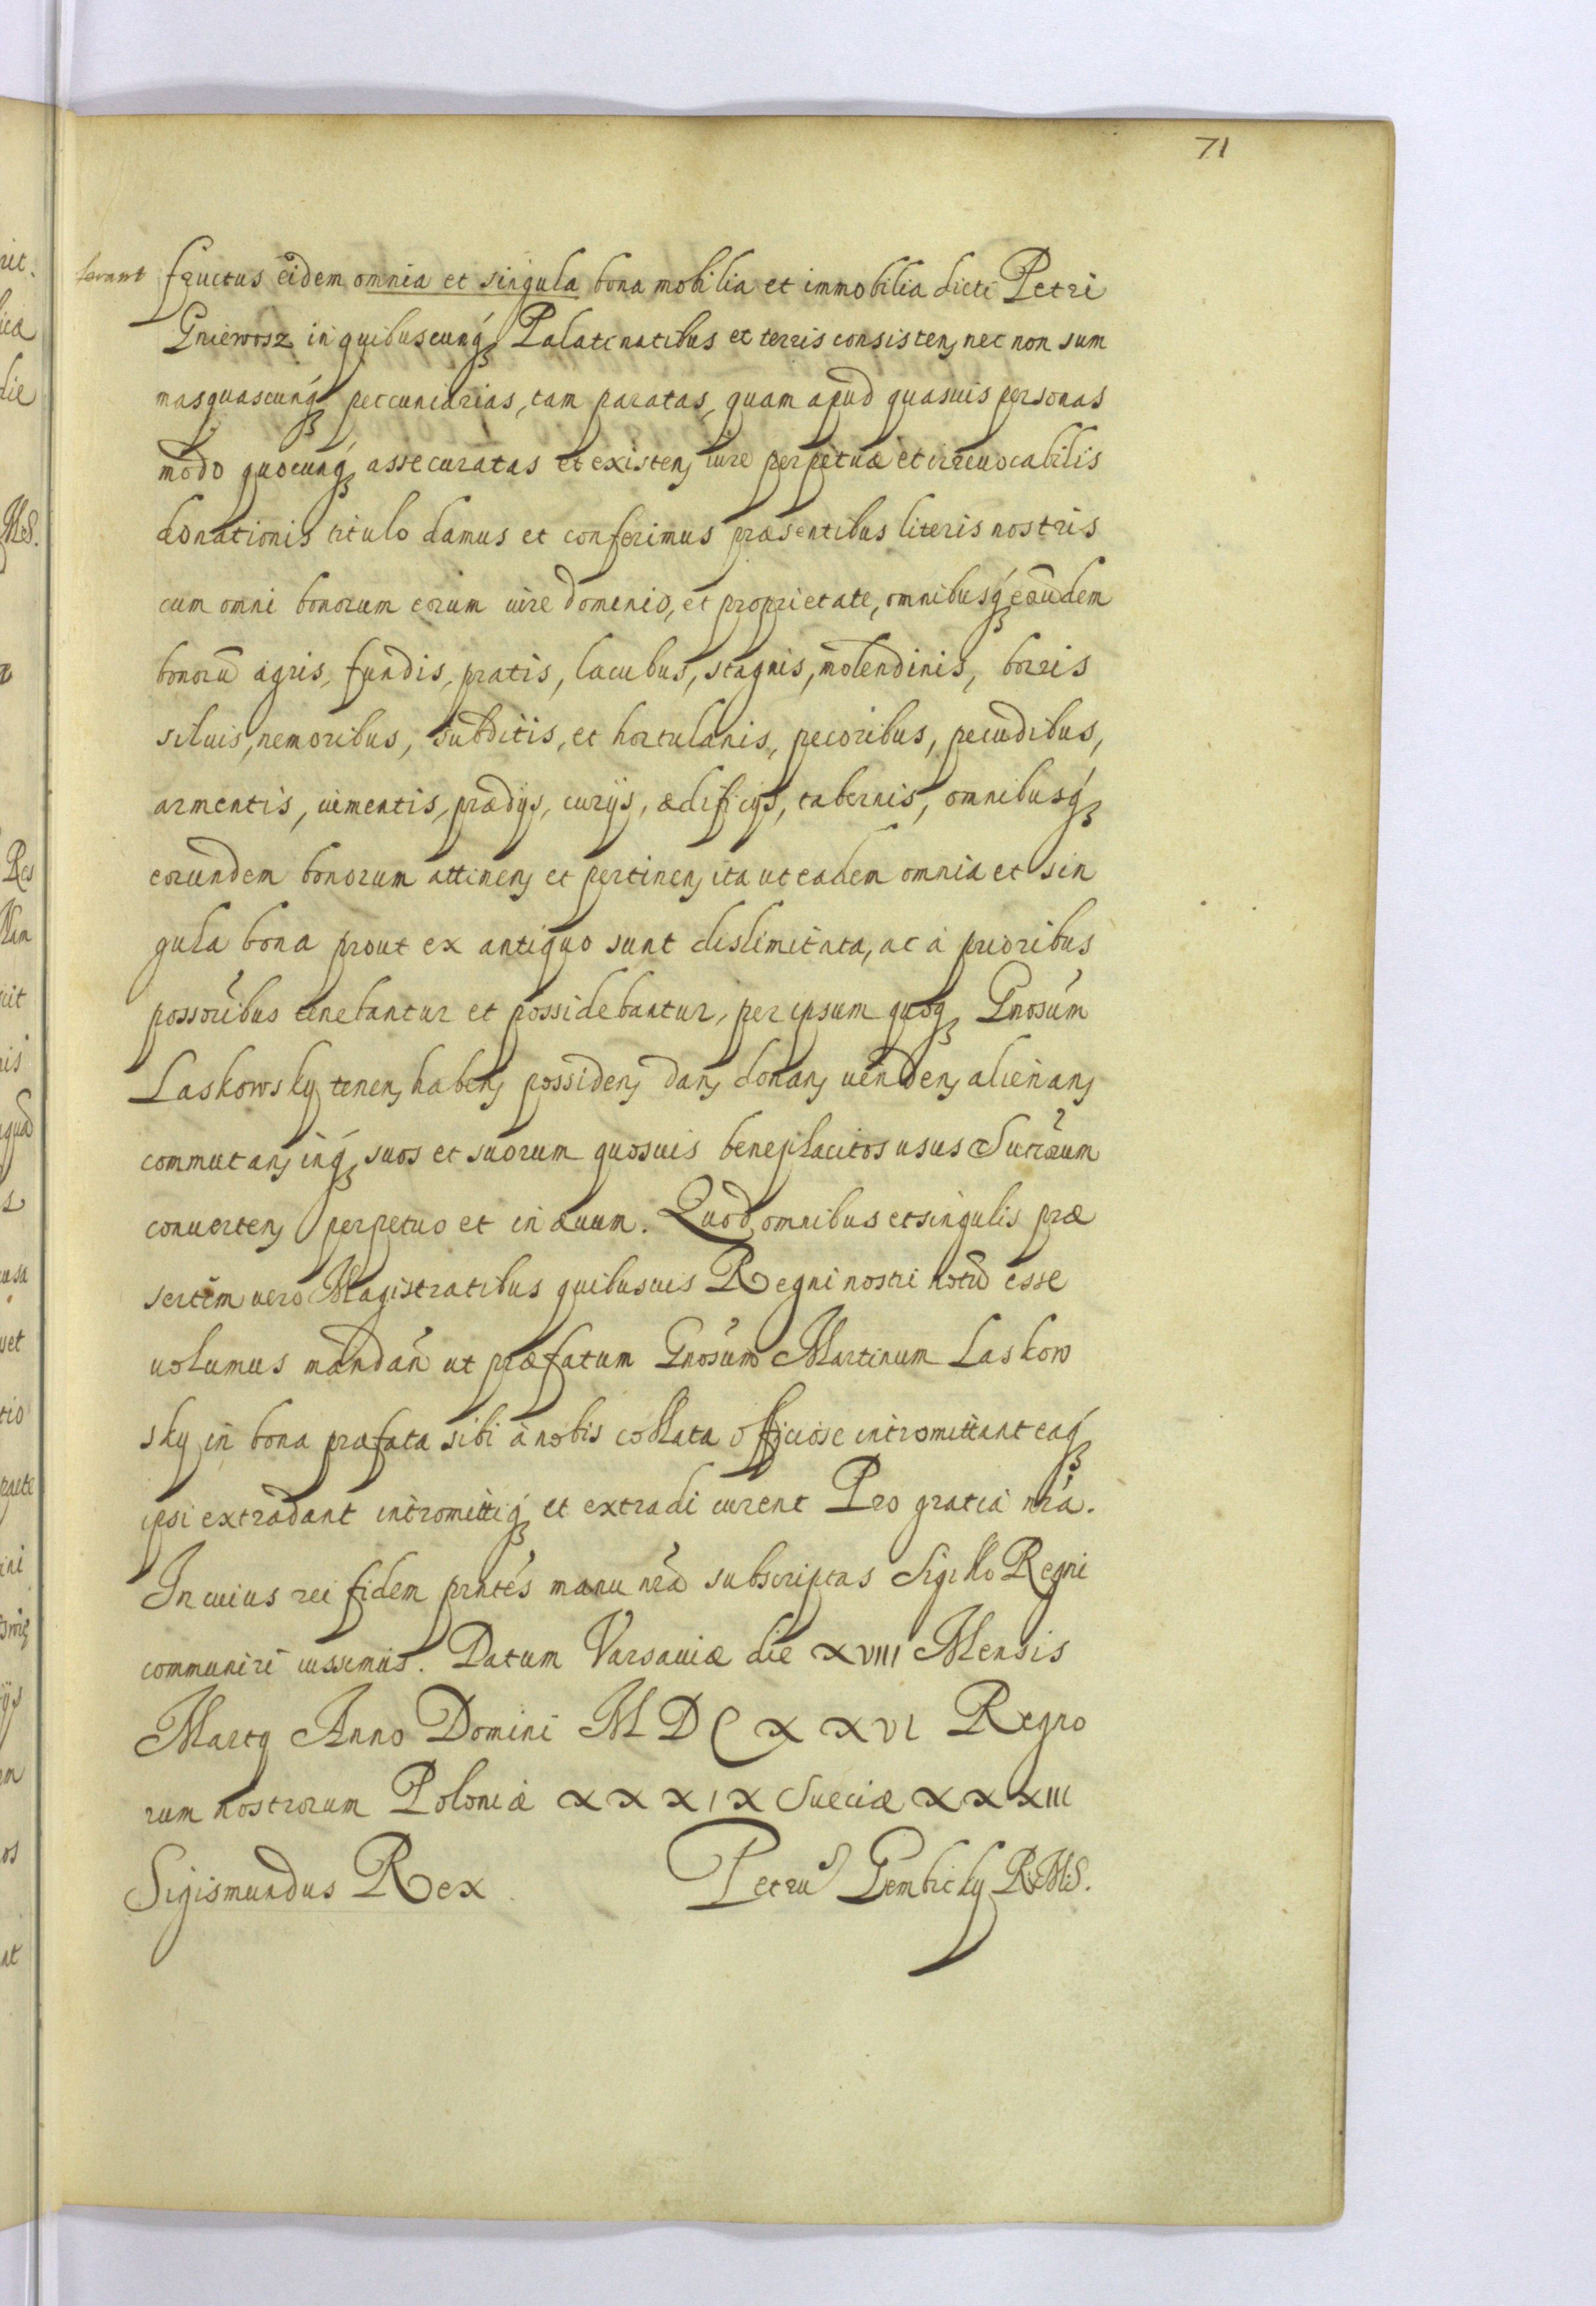 71
ferant fructus eidem omnia et singula bona mobilia et immobilia dicti Petri
Gniewosz in quibuscunq́ꝫ Palatinatibus et terris consisten̨ nec non sum
mas quascunq́ꝫ peccuniarias, tam paratas, quam apud quasuis personas
modo quocunq́ꝫ assecuratas et existen̨ iure perpetuæ et irreuocabilis
donationis titulo damus et conferimus præsentibus literis nostris
cum omni bonorum eorum iure dominio, et proprietate, omnibusq́ꝫ eoūdem
bonorū agris, fundis, pratis, lacubus, stagnis, molendinis, borris
siluis, nemoribus, subditis, et hortulanis, pecoribus, pecudibus,
armentis, iumentis, prædijs, curijs, ædificijs, tabernis, omnibusq́ꝫ
eorundem bonorum attinen̨ et pertinen̨ ita ut eadem omnia et sin
gula bona prout ex antiquo sunt dislimitata, ac à prioribus
possoribus tenebantur et possidebantur, per ipsum quoqꝫ Gnosum
Laskowsky tenen̨ haben̨ possiden̨ dan̨ donan̨ uenden̨ alienan̨
commutan̨ inq́ꝫ suos et suorum quosuis beneplacitos usus Succōrum
conuerten̨ perpetuo et in æuum. Quod omnibus et singulis præ
sertim uero Magistratibus quibusuis Regni nostri notū esse
uolumus mandan̄ ut præfatum Gnosum Martinum Laskow
sky in bona præfata sibi à nobis collata officiose intromittant eaq́ꝫ
ipsi extradant intromittiq́ꝫ et extradi curent Pro gratia nrā.
In cuius rei fidem prntes manu nrā subscriptas Sigillo Regni
communiri iussimus. Datum Varsauiæ die XVIII Mensis
Martij Anno Domini MDCXXVI Regno
rum nostrorum Poloniæ XXXIX Sueciæ XXXIII
Sigismundus Rex. Petrus Gembicky R.M.S.